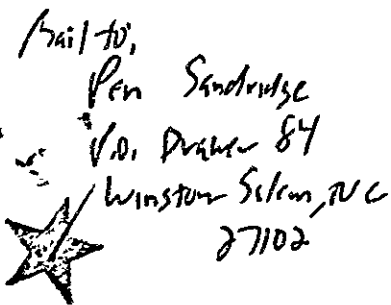 Mail to:
Pen Sandridge
P.O. Drawer 84
Winston Salem, NC
27102